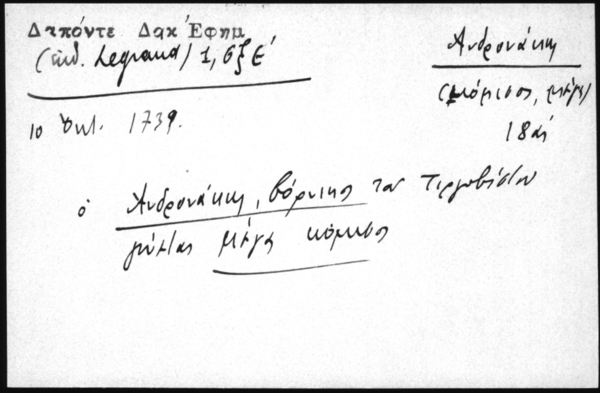 Δαπόντε Δακ Ἐφημ
(ἐκδ. Legrand) 1, σξε´
Ἀνδρονάκης
(κόμισος, μέγας)
18 αἰ
10 Ὀκτ. 1739.
ὁ Ἀνδρονάκης, βόρνικος του Τιργοβίστου
γίνεται μέγας κόμισος